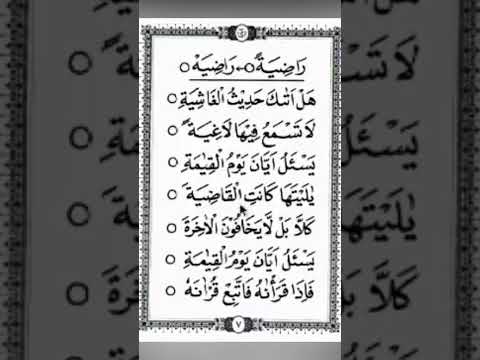 رَاضِيَةً ○ ← رَاضِيَهْ ○
هَلْ اَتٰىكَ حَدِيْثُ الْغَاشِيَةِ ○
لَا تَسْمَعُ فِيْهَا لَاغِيَةً ○
يَسْئَلُ اَيَّانَ يَوْمُ الْقِيٰمَةِ ○
يٰلَيْتَهَا كَانَتِ الْقَاضِيَةَ ○
كَلَّا بَلْ لَّا يَخَافُوْنَ الْاٰخِرَةَ ○
يَسْئَلُ اَيَّانَ يَوْمُ الْقِيٰمَةِ ○
فَاِذَا قَرَأْنٰهُ فَاتَّبِعْ قُرْاٰنَهُ ○
٧